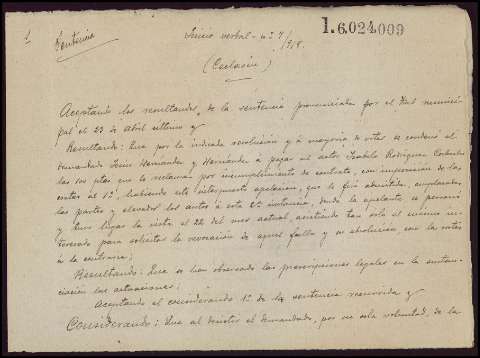 1
Sentencia
Juicio verbal - nº 7/918.
1.6.024.009
(Casación)
Aceptando los resultandos, de la sentencia pronunciada por el Trib. munici-
pal el 23 de Abril último y
Resultando: Que por la indicada resolución y á mayoría de votos se condenó al
demandado Jesús Hernández y Hernández á pagar al actor Rodríguez
las 500 ptas que le reclama por incumplimiento de contrato, con imposición de las
costas al 1º, habiendo este interpuesto apelación, que le fué admitida, emplazadas
las partes y elevados los autos á esta 2ª instancia, donde la apelante se personó
y tuvo lugar la vista el 22 del mes actual, asistiendo tan solo el mismo in-
teresado para solicitar la revocación de aquel fallo y su absolución, con las costas
á la contraria;
Resultando: Que se han observado las prescripciones legales en la sustan-
ciación las actuaciones;
Aceptando el considerando 1º de la sentencia recurrida y
Considerando: Que al desistir el demandado, por su sola voluntad, de la